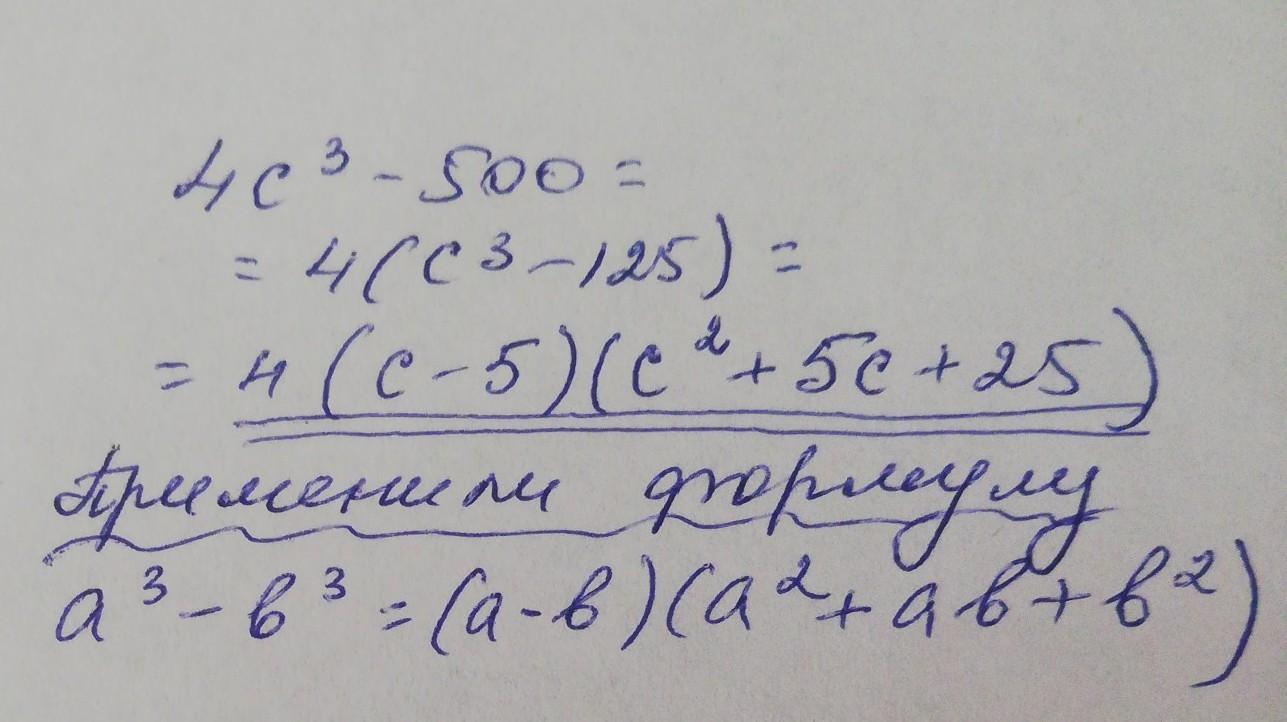 4c³ - 500 =
= 4(c³ - 125) =
= 4(c - 5)(c² + 5c + 25)
Применили формулу
a³ - в³ = (a - в)(a² + aв + в²)